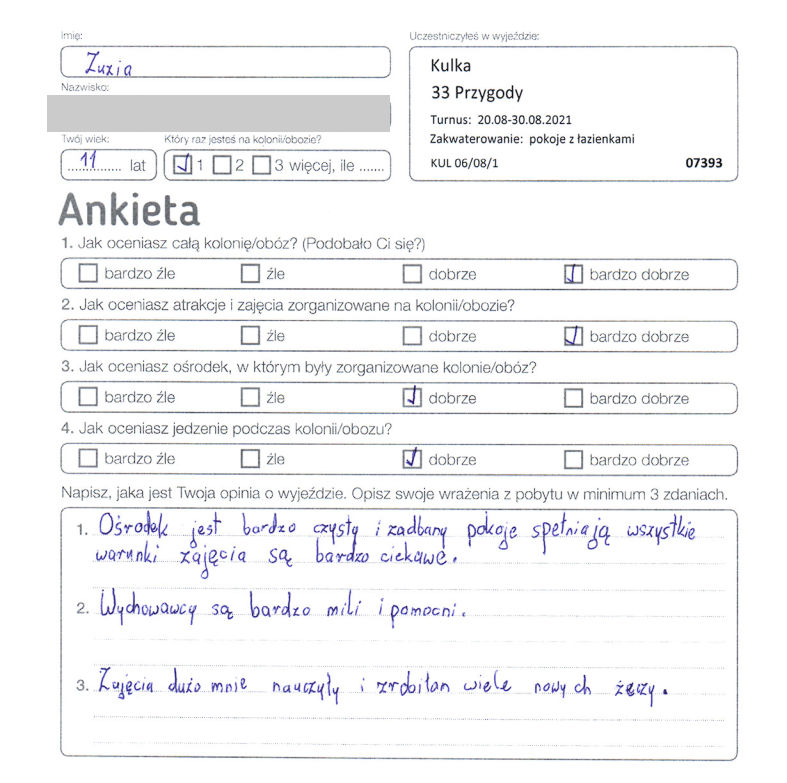 Imię:
Zuzia
Nazwisko:
Twój wiek:
11 lat
Który raz jesteś na kolonii/obozie?
1 2 3 więcej, ile .......
Uczestniczyłeś w wyjeździe:
Kulka
33 Przygody
Turnus: 20.08-30.08.2021
Zakwaterowanie: pokoje z łazienkami
KUL 06/08/1 07393
Ankieta
1. Jak oceniasz całą kolonię/obóz? (Podobało Ci się?)
bardzo źle źle dobrze bardzo dobrze
2. Jak oceniasz atrakcje i zajęcia zorganizowane na kolonii/obozie?
bardzo źle źle dobrze bardzo dobrze
3. Jak oceniasz ośrodek, w którym były zorganizowane kolonie/obóz?
bardzo źle źle dobrze bardzo dobrze
4. Jak oceniasz jedzenie podczas kolonii/obozu?
bardzo źle źle dobrze bardzo dobrze
Napisz, jaka jest Twoja opinia o wyjeździe. Opisz swoje wrażenia z pobytu w minimum 3 zdaniach.
1. Ośrodek jest bardzo czysty i zadbany pokoje spełniają wszystkie
warunki zajęcia są bardzo ciekawe.
2. Wychowawcy są bardzo mili i pomocni.
3. Zajęcia dużo mnie nauczyły i zrobiłan wiele nowych żeczy.